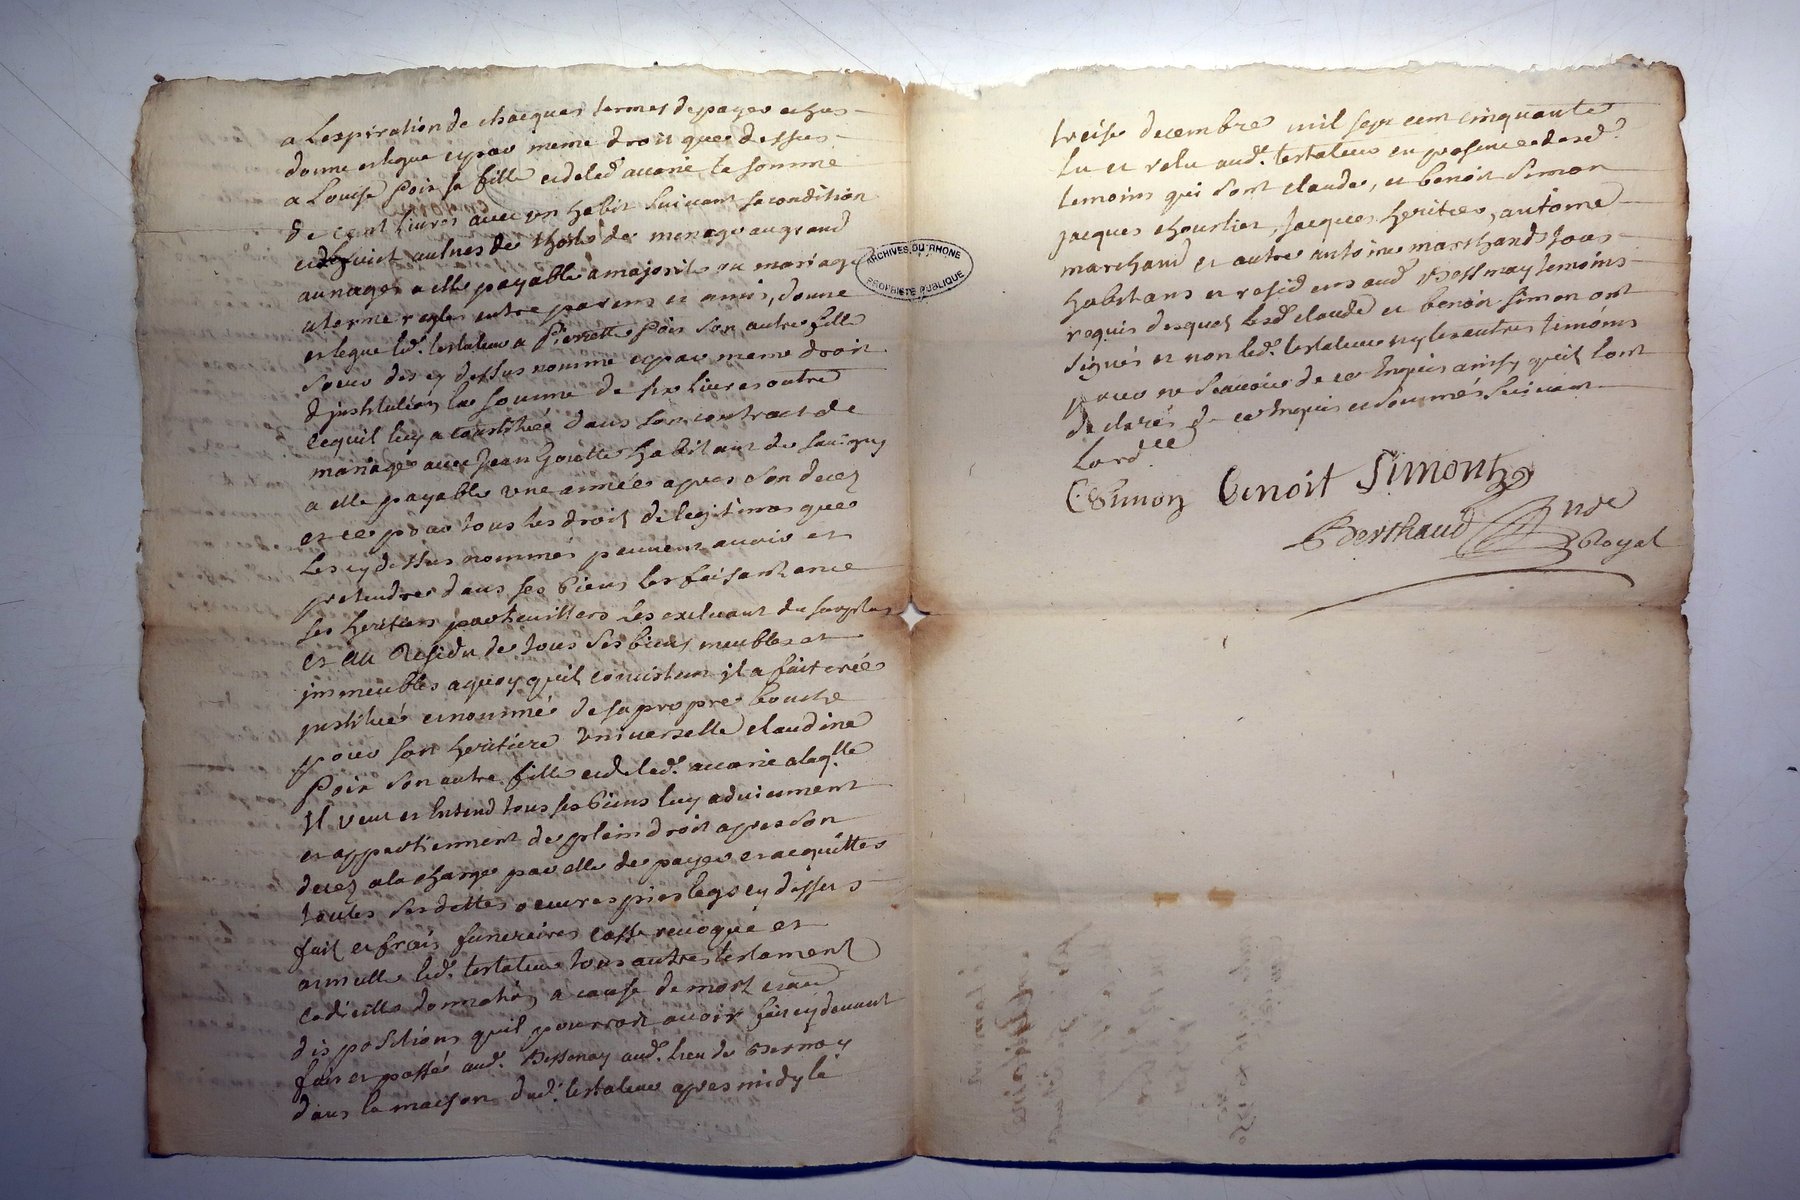 a Lexpiration de chacques termes de payer echus
donne et legue et par meme droit que dessus
a Louise Poix sa fille et de led. avarie la somme
de cent livres avec un habit suivant sa condition
et huict aulnes de thoile de menage au grand
aunage a elle payable a majorité ou mariage
a terme regler entre parens et amis, donne
et legue led. testateur a Pierrette Poix son autre fille
soeur des cy dessus nommé et par meme droit
d'institution la somme de six livres outre
ce quil luy a constitué dans son contract de
mariage avec Jean habitant de savigny
a elle payable une année apres son decez
et ce pour tous les droit de legitimes que
les cy dessus nommés peuvent avoir et
pretendre dans ses biens les faisant en ce
ses heritiers particulliers les excluant du surplus
et au Residu de tous ses biens meubles et
immeubles a quoy quil consistent il a fait créé
institué et nommé de sa propre bouche
pour son heritiere universelle claudine
Poix son autre fille et de led. avarie a laq.lle
Il veut et Entend tous ses biens luy adviennent
et appartiennent de plein droit apres son
decez a la charge par elle de payer et acquitter
toutes ses dettes oeuvres pies legs cy dessus
fait et frais funeraires casse revoqué et
annulle led. testateur tous autres testament
codicille donnation a cause de mort et au
dispositions quil pourroit avoir fait cy devant
fait et passé aud. Bessenay aud. lieu de Bernay
dans la maison dud. testateur apres midy le
treise decembre mil sept cent cinquante
lu et relu aud. testateur en presence de sd.
temoins qui sont claude, et benoit Simon
jacques chourlier, Jacques heritier, antoine
marchand et autre antoine marchand tous
habitans et residens aud. Bessenay temoins
requis desquel lesd. claude et benoit Simon ont
signés et non led. testateur ny les autres temoins
pour ne scavoir de ce Enquis ainsy quil lont
declarés de ce Enquis et sommés suivant
Lord.ce
C Simon Benoit Simont
Berthaud no.re
Royal
ARCHIVES DU RHONE
PROPRIETE PUBLIQUE